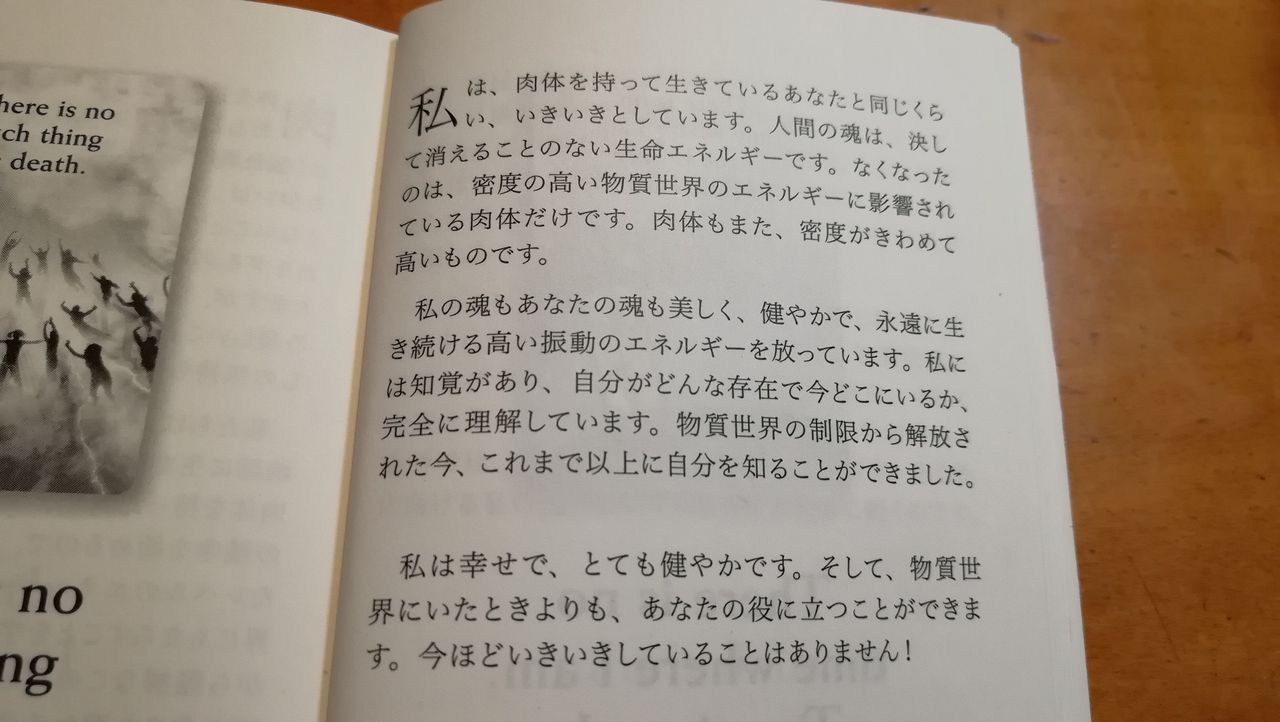 here is no
ch thing
death.
no
ng
私は、肉体を持って生きているあなたと同じくら
い、いきいきとしています。人間の魂は、決し
て消えることのない生命エネルギーです。なくなった
のは、密度の高い物質世界のエネルギーに影響され
ている肉体だけです。肉体もまた、密度がきわめて
高いものです。
私の魂もあなたの魂も美しく、健やかで、永遠に生
き続ける高い振動のエネルギーを放っています。私に
は知覚があり、自分がどんな存在で今どこにいるか、
完全に理解しています。物質世界の制限から解放さ
れた今、これまで以上に自分を知ることができました。
私は幸せで、とても健やかです。そして、物質世
界にいたときよりも、あなたの役に立つことができま
す。今ほどいきいきしていることはありません！